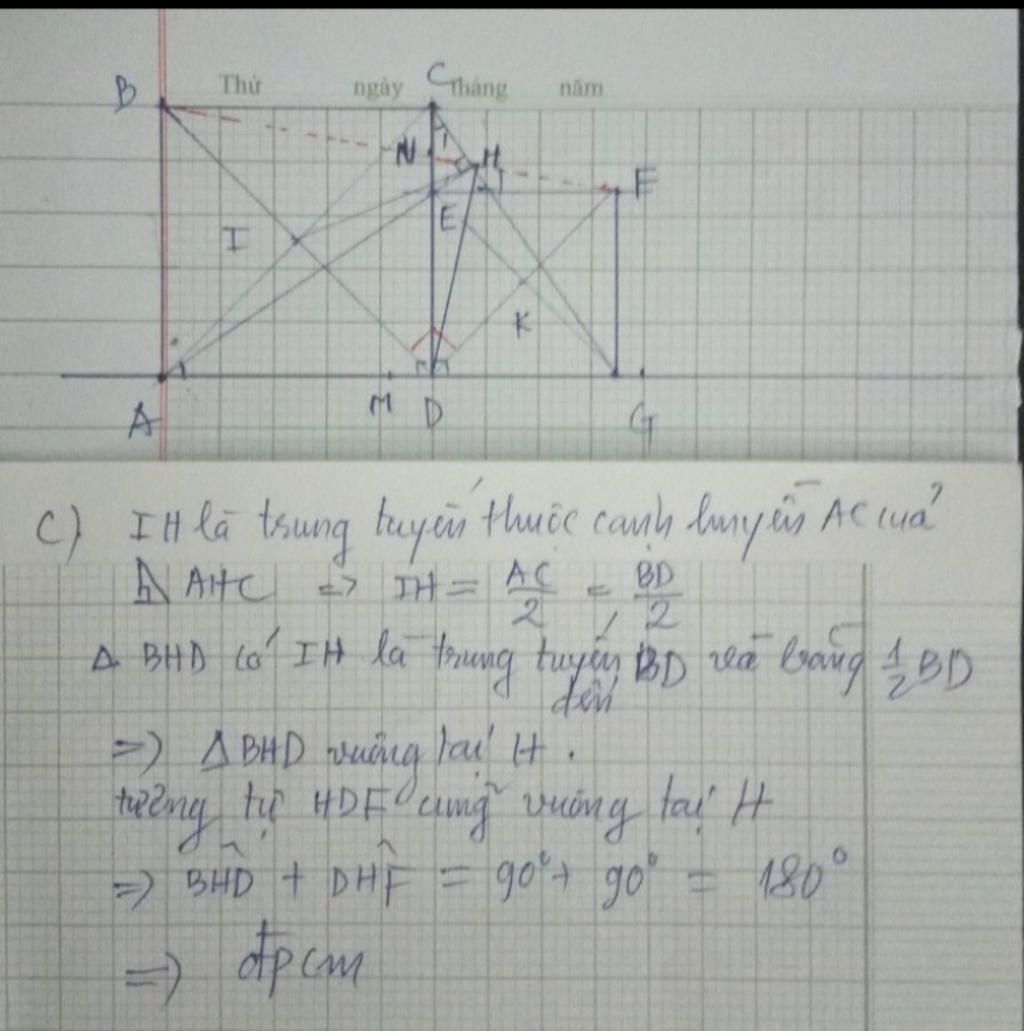 Thứ ngày tháng năm
B C
N 1 H
E F
I
K
A M D G
c) IH là trung tuyến thuộc cạnh huyền AC của
AHC => IH = AC/2 = BD/2
Δ BHD có IH là trung tuyến đến BD và bằng 1/2 BD
=> Δ BHD vuông tại H.
tương tự HDF cũng vuông tại H
=> BĤD + DĤF = 90° + 90° = 180°
=> đpcm